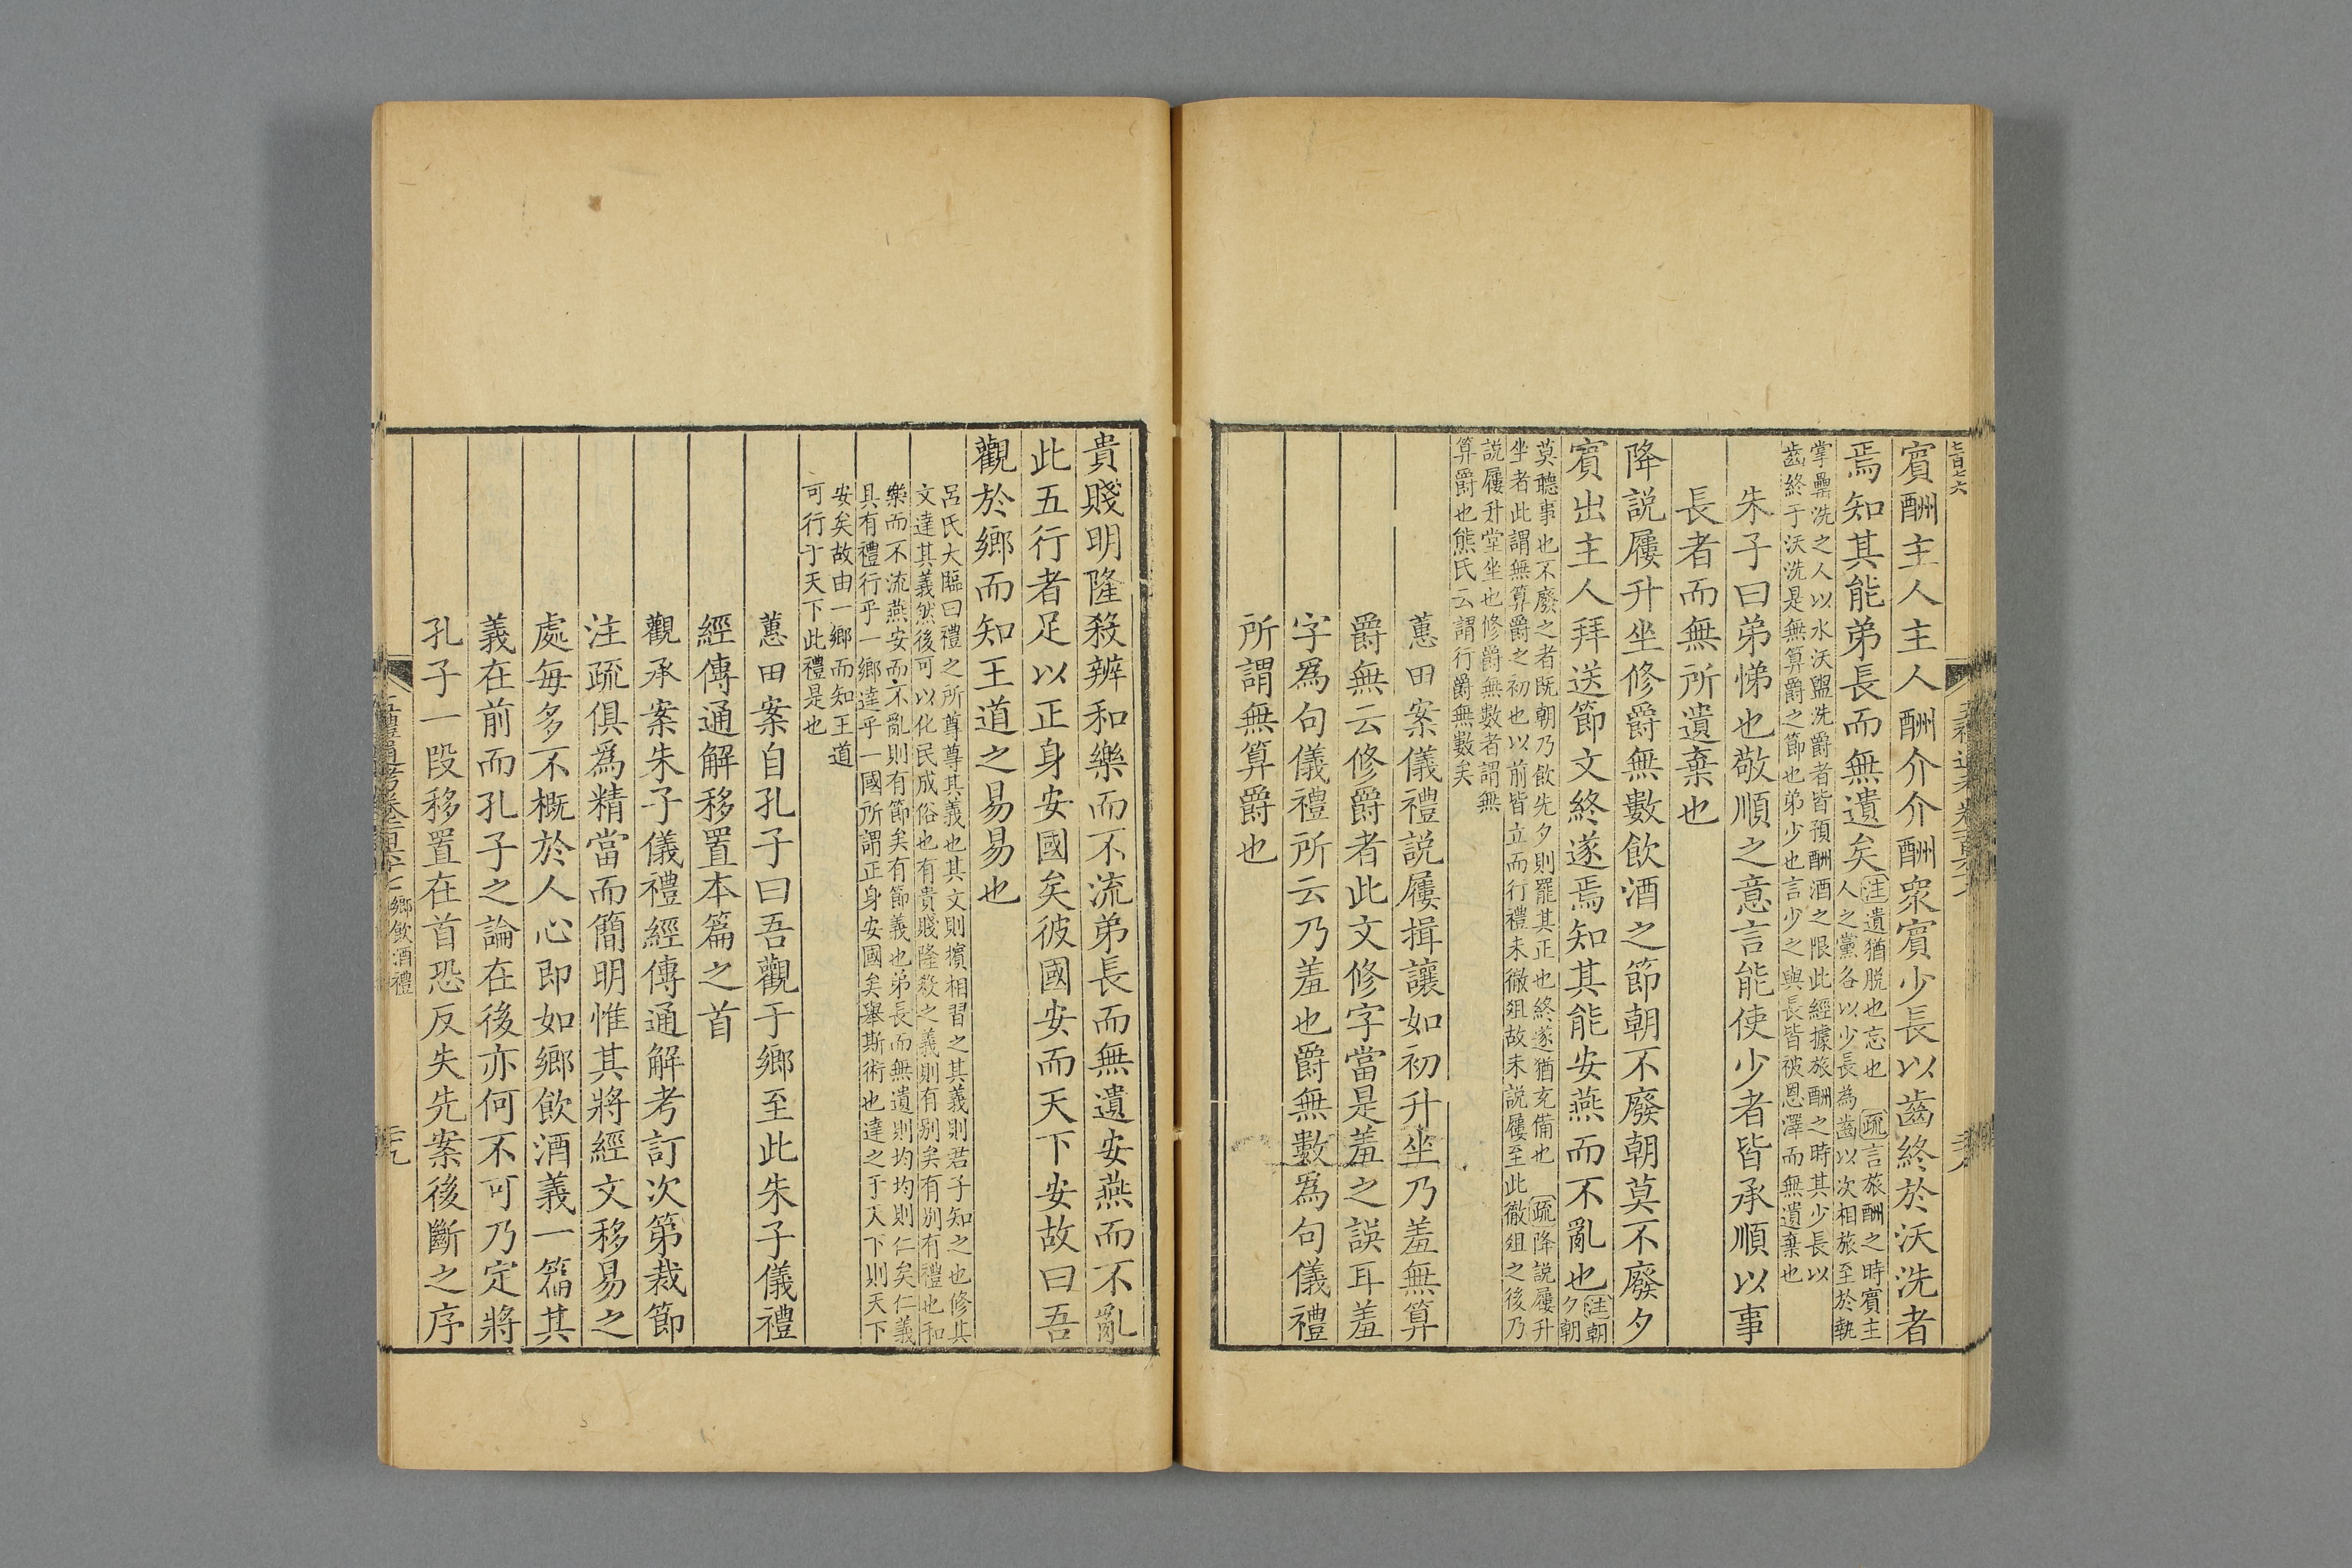 七百七六
賓酬主人主人酬介介酬衆賓少長以齒終於沃洗者
焉知其能弟長而無遺矣注遺猶脱也忘也 疏言旅酬之時賓主
人之黨各以少長為齒以次相旅至於執
掌罍洗之人以水沃盥洗爵者皆預酬酒之限此經據旅酬之時其少長以
齒終于沃洗是無算爵之節也弟少也言少之與長皆被恩澤而無遺棄也
朱子曰弟悌也敬順之意言能使少者皆承順以事
長者而無所遺棄也
降説屨升坐修爵無數飲酒之節朝不廢朝莫不廢夕
賓出主人拜送節文終遂焉知其能安燕而不亂也注朝
夕朝
莫聽事也不廢之者既朝乃飲先夕則罷其正也終遂猶充備也 疏降説屨升
坐者此謂無算爵之初也以前皆立而行禮未徹俎故未説屨至此徹俎之後乃
説屨升堂坐也修爵無數者謂無
算爵也熊氏云謂行爵無數矣
蕙田案儀禮説屨揖讓如初升坐乃羞無算
爵無云修爵者此文修字當是羞之誤耳羞
字爲句儀禮所云乃羞也爵無數爲句儀禮
所謂無算爵也
貴賤明隆殺辨和樂而不流弟長而無遺安燕而不亂
此五行者足以正身安國矣彼國安而天下安故曰吾
觀於鄉而知王道之易易也
呂氏大臨曰禮之所尊尊其義也其文則擯相習之其義則君子知之也修其
文達其義然後可以化民成俗也有貴賤隆殺之義則有别矣有别有禮也和
樂而不流燕安而不亂則有節矣有節義也弟長而無遺則均均則仁矣仁義
具有禮行乎一鄉達乎一國所謂正身安國矣舉斯術也達之于天下則天下
安矣故由一鄉而知王道
可行于天下此禮是也
蕙田案自孔子曰吾觀于鄉至此朱子儀禮
經傳通解移置本篇之首
觀承案朱子儀禮經傳通解考訂次第裁節
注疏俱爲精當而簡明惟其將經文移易之
處每多不概於人心即如鄉飲酒義一篇其
義在前而孔子之論在後亦何不可乃定將
孔子一段移置在首恐反失先案後斷之序
鄉飲酒禮